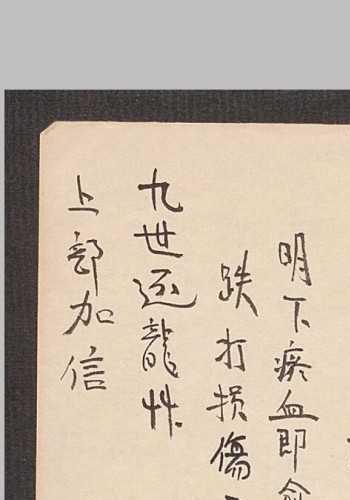 明下瘀血即愈
跌打損傷
九世还龍艸
上部加信